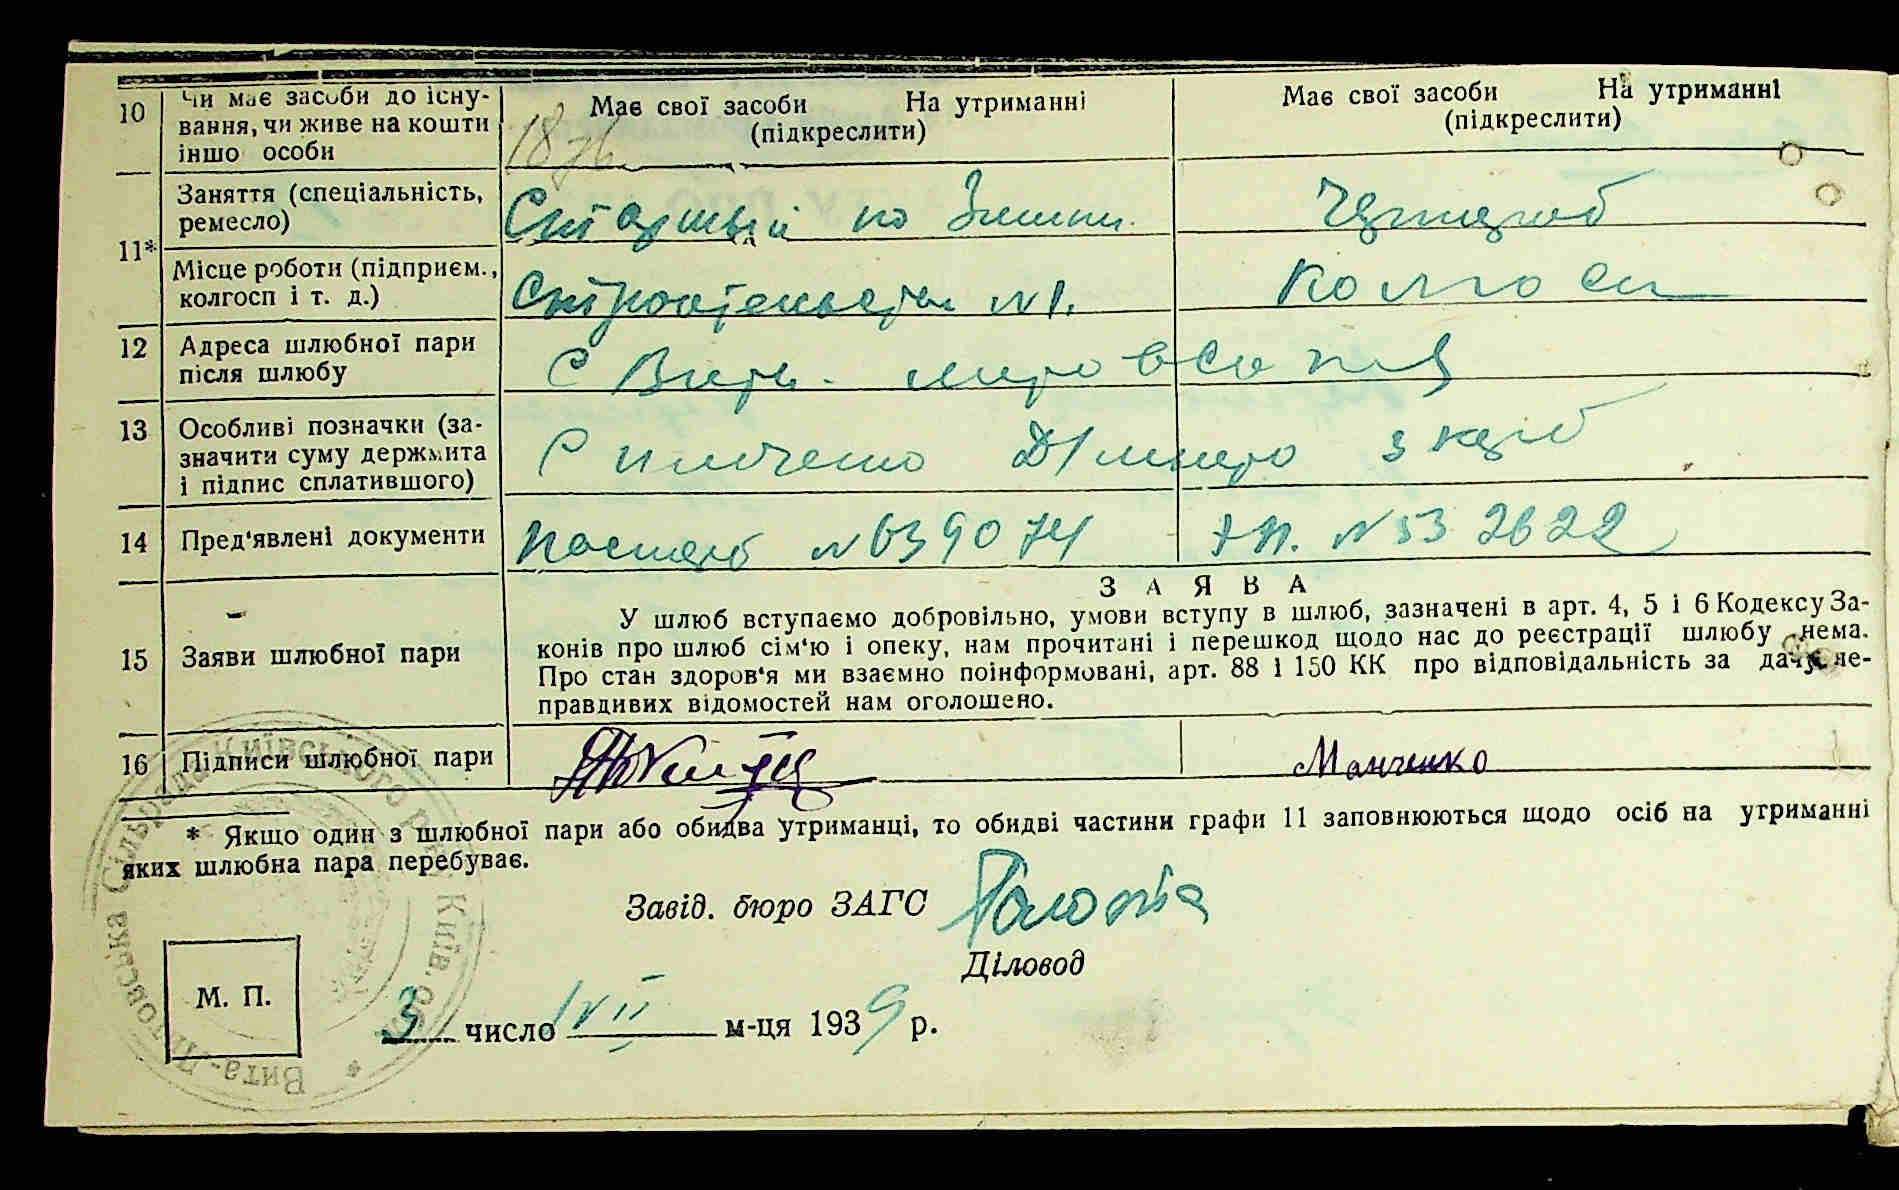 10 Чи має засоби до існу-
вання, чи живе на кошти
іншо особи
Має свої засоби На утриманні
(підкреслити)
Має свої засоби На утриманні
(підкреслити)
11* Заняття (спеціальність,
ремесло)
Старший по
Місце роботи (підприєм.,
колгосп і т. д.)
№1.
Колгосп
12 Адреса шлюбної пари
після шлюбу
С
13 Особливі позначки (за-
значити суму держмита
і підпис сплатившого)
14 Пред'явлені документи
Паспорт №639074
№532622
15 Заяви шлюбної пари
ЗАЯВА
У шлюб вступаємо добровільно, умови вступу в шлюб, зазначені в арт. 4, 5 і 6 Кодексу За-
конів про шлюб сім'ю і опеку, нам прочитані і перешкод щодо нас до реєстрації шлюбу нема.
Про стан здоров'я ми взаємно поінформовані, арт. 88 і 150 КК про відповідальність за дачу не-
правдивих відомостей нам оголошено.
16 Підписи шлюбної пари
Манченко
* Якщо один з шлюбної пари або обидва утриманці, то обидві частини графи 11 заповнюються щодо осіб на утриманні
яких шлюбна пара перебуває.
Завід. бюро ЗАГС
Діловод
М. П.
3 число VII м-ця 1939 р.
Сільрада Київського Київ.